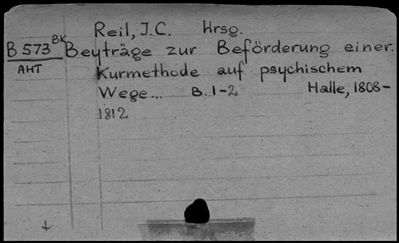 Reil, J.C. Hrsg.
B 573 BK Beyträge zur Beförderung einer
AHT Kurmethode auf psychischem
Wege... B. 1-2 Halle, 1808-
1812